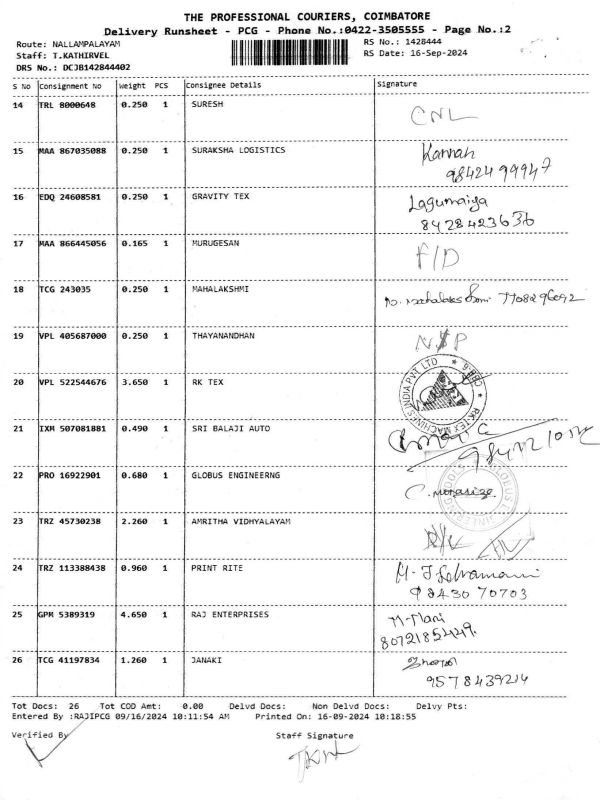 THE PROFESSIONAL COURIERS, COIMBATORE
Delivery Runsheet - PCG - Phone No.:0422-3505555 - Page No.:2
Route: NALLAMPALAYAM RS No.: 1428444
Staff: T.KATHIRVEL RS Date: 16-Sep-2024
DRS No.: DCJB142844402
S No Consignment No Weight PCS Consignee Details Signature
14 TRL 8000648 0.250 1 SURESH CNL
15 MAA 867035088 0.250 1 SURAKSHA LOGISTICS Kannan
9842499947
16 EDQ 24608581 0.250 1 GRAVITY TEX Lagumaiya
8428423636
17 MAA 866445056 0.165 1 MURUGESAN F/D
18 TCG 243035 0.250 1 MAHALAKSHMI 7708296092
19 VPL 405687000 0.250 1 THAYANANDHAN
20 VPL 522544676 3.650 1 RK TEX RK TEX MACHINES INDIA PVT LTD
CBE-6
21 IXM 507081881 0.490 1 SRI BALAJI AUTO
22 PRO 16922901 0.680 1 GLOBUS ENGINEERNG
23 TRZ 45730238 2.260 1 AMRITHA VIDHYALAYAM
24 TRZ 113388438 0.960 1 PRINT RITE
98430 70703
25 GPM 5389319 4.650 1 RAJ ENTERPRISES M-Mani
8072185449.
26 TCG 41197834 1.260 1 JANAKI ஜானகி
9578439214
Tot Docs: 26 Tot COD Amt: 0.00 Delvd Docs: Non Delvd Docs: Delvy Pts:
Entered By :RAJIPCG 09/16/2024 10:11:54 AM Printed On: 16-09-2024 10:18:55
Verified By Staff Signature